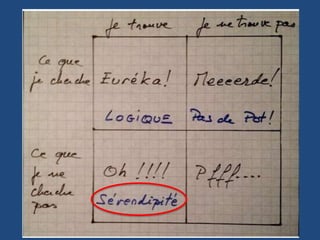 Je trouve Je ne trouve pas
Ce que
je cherche Euréka! Meeeerde!
LOGIQUE Pas de Pot!
Ce que
je ne Oh !!!! Pfff....
cherche
pas Sérendipité